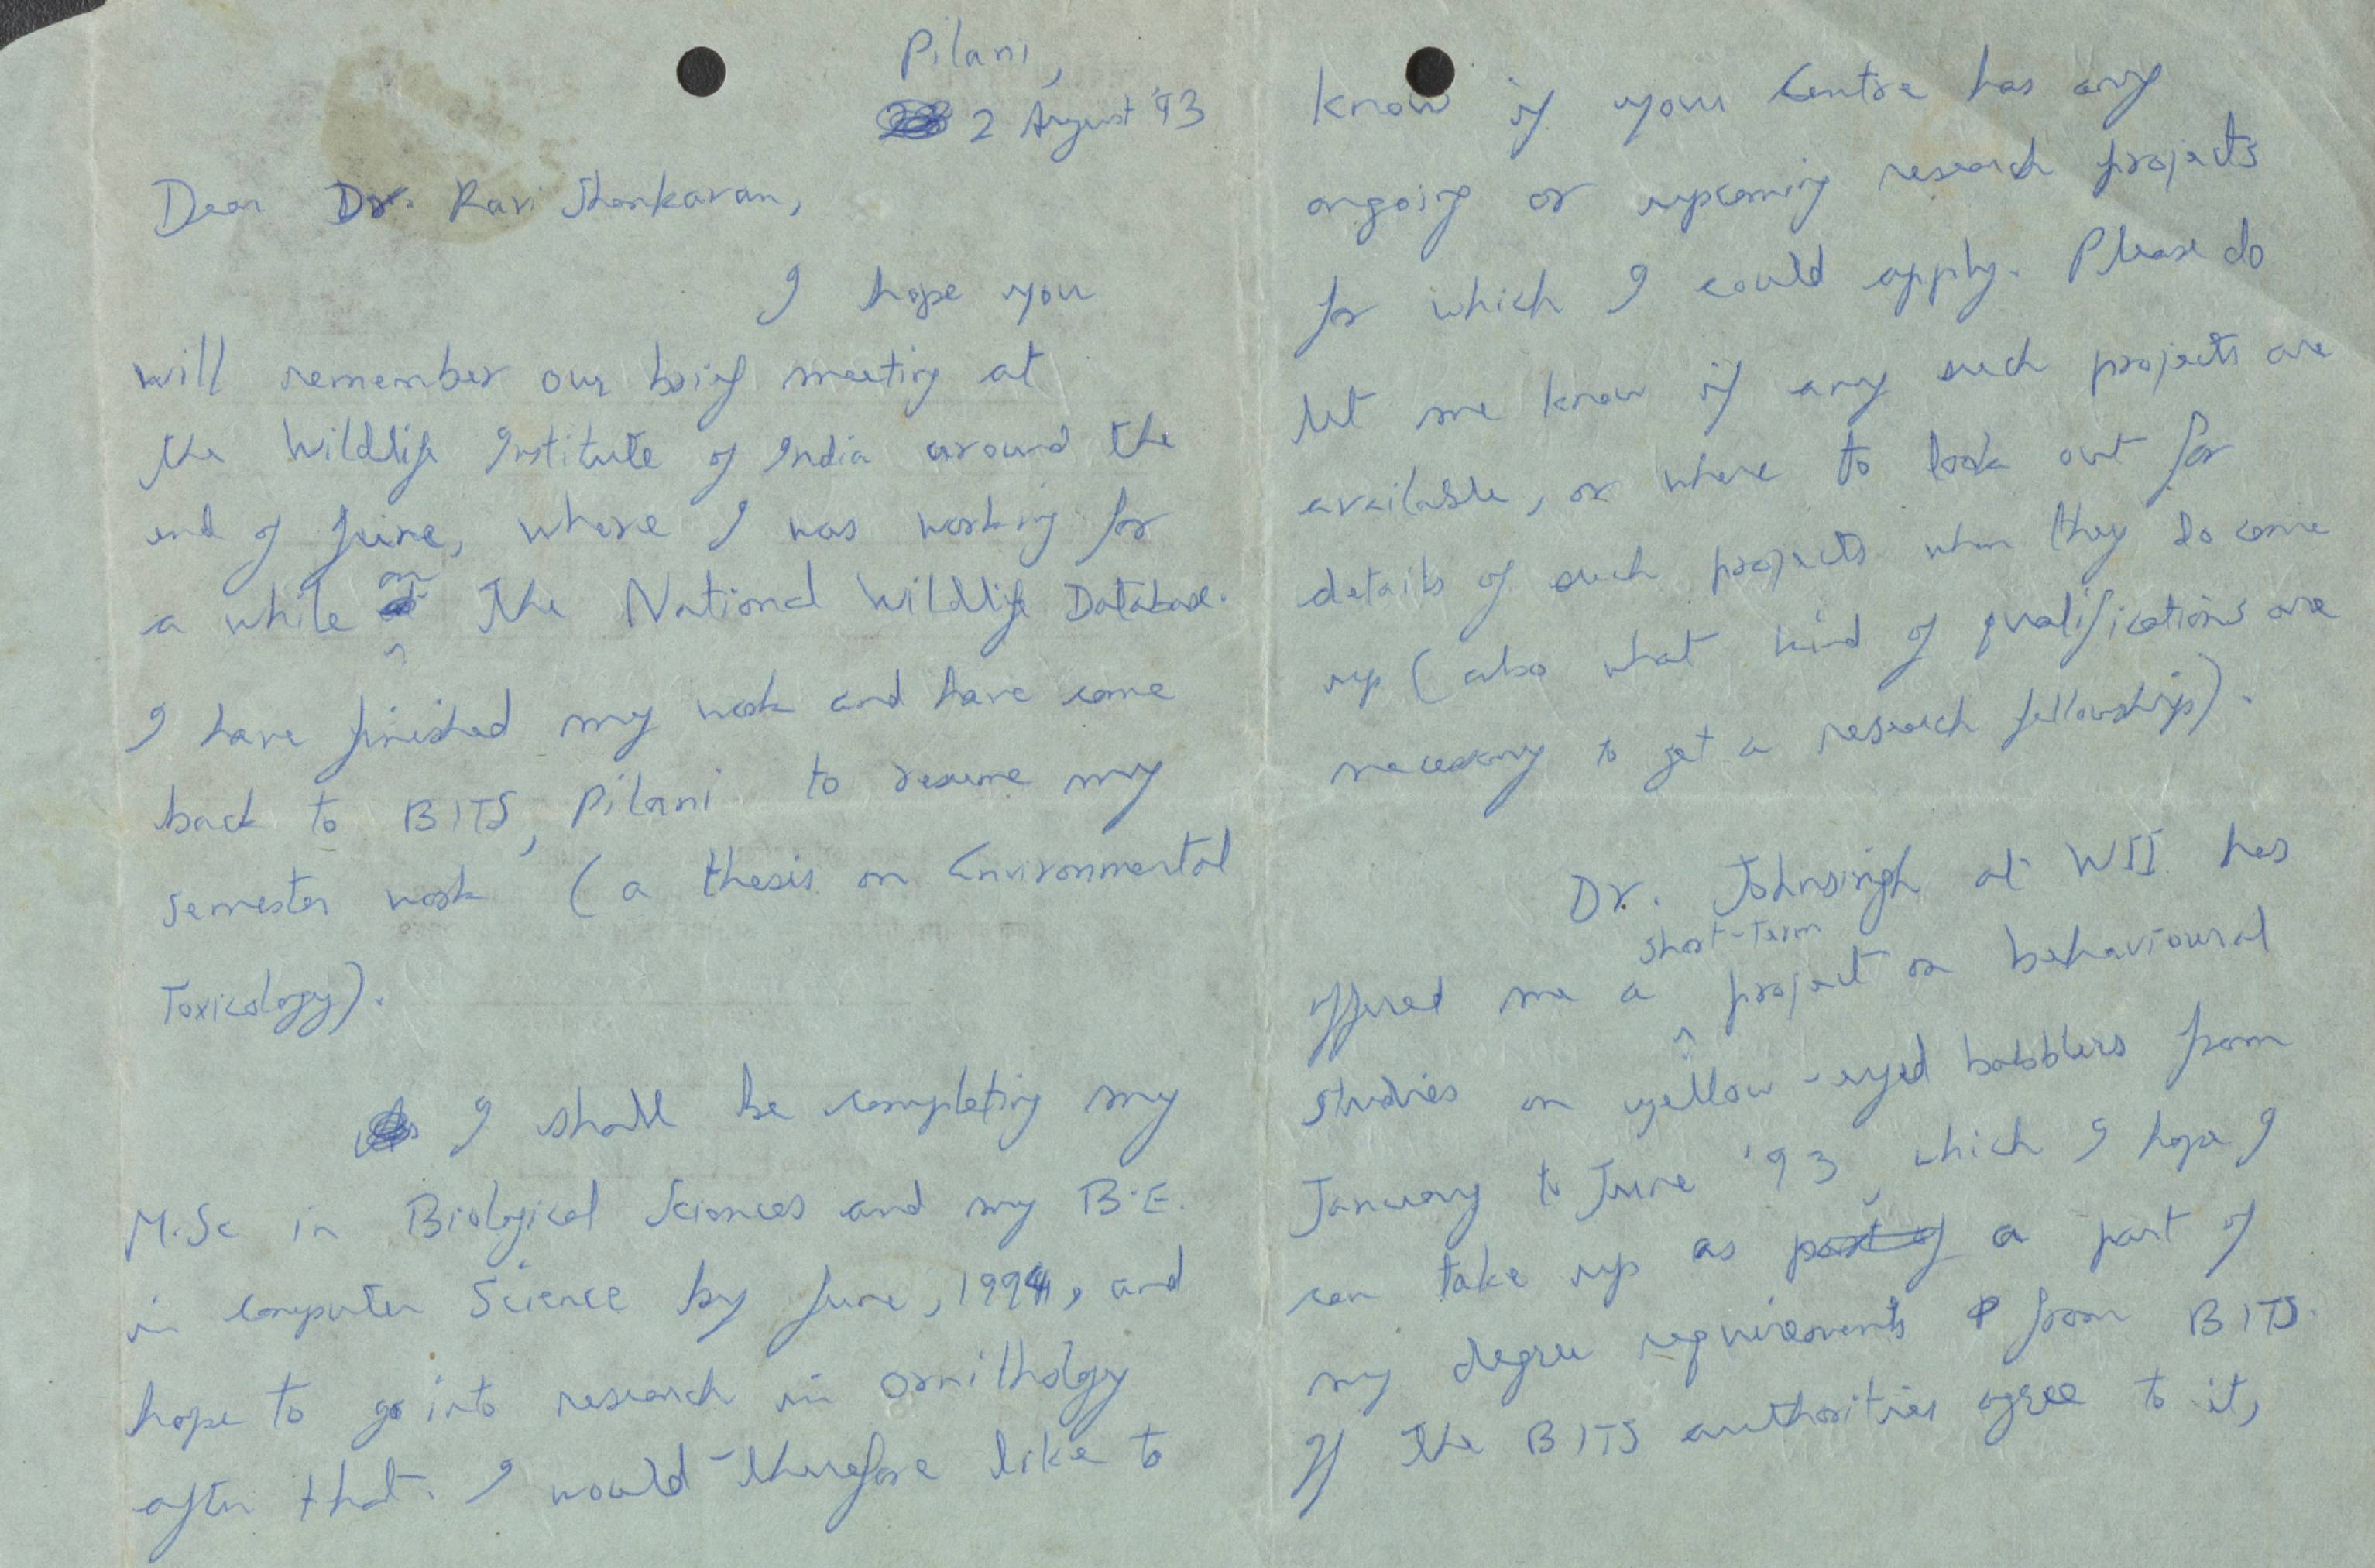 Pilani,
2 August '93
Dear Dr. Ravi Shankaran,
I hope you
will remember our brief meeting at
the Wildlife Institute of India around the
end of June, where I was working for
a while on the National Wildlife Database.
I have finished my work and have come
back to BITS, Pilani to resume my
semester work (a thesis on Environmental
Toxicology).
I shall be completing my
M.Sc in Biological Sciences and my B.E.
in Computer Science by June, 1994, and
hope to go into research in ornithology
after that. I would therefore like to
know if your Centre has any
ongoing or upcoming research projects
for which I could apply. Please do
let me know if any such projects are
available, or where to look out for
details of such projects when they do come
up (also what kind of qualifications are
necessary to get a research fellowship).
Dr. Johnsingh at WII has
short-term
offered me a project on behavioural
studies on yellow-eyed babblers from
January to June '93, which I hope I
can take up as part of a part of
my degree requirements from BITS.
If the BITS authorities agree to it,